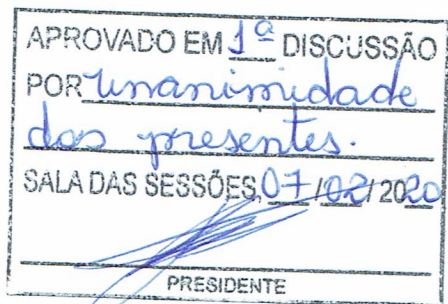 APROVADO EM 1ª DISCUSSÃO
POR unanimidade
dos presentes.
SALA DAS SESSÕES, 07/02/2020
PRESIDENTE